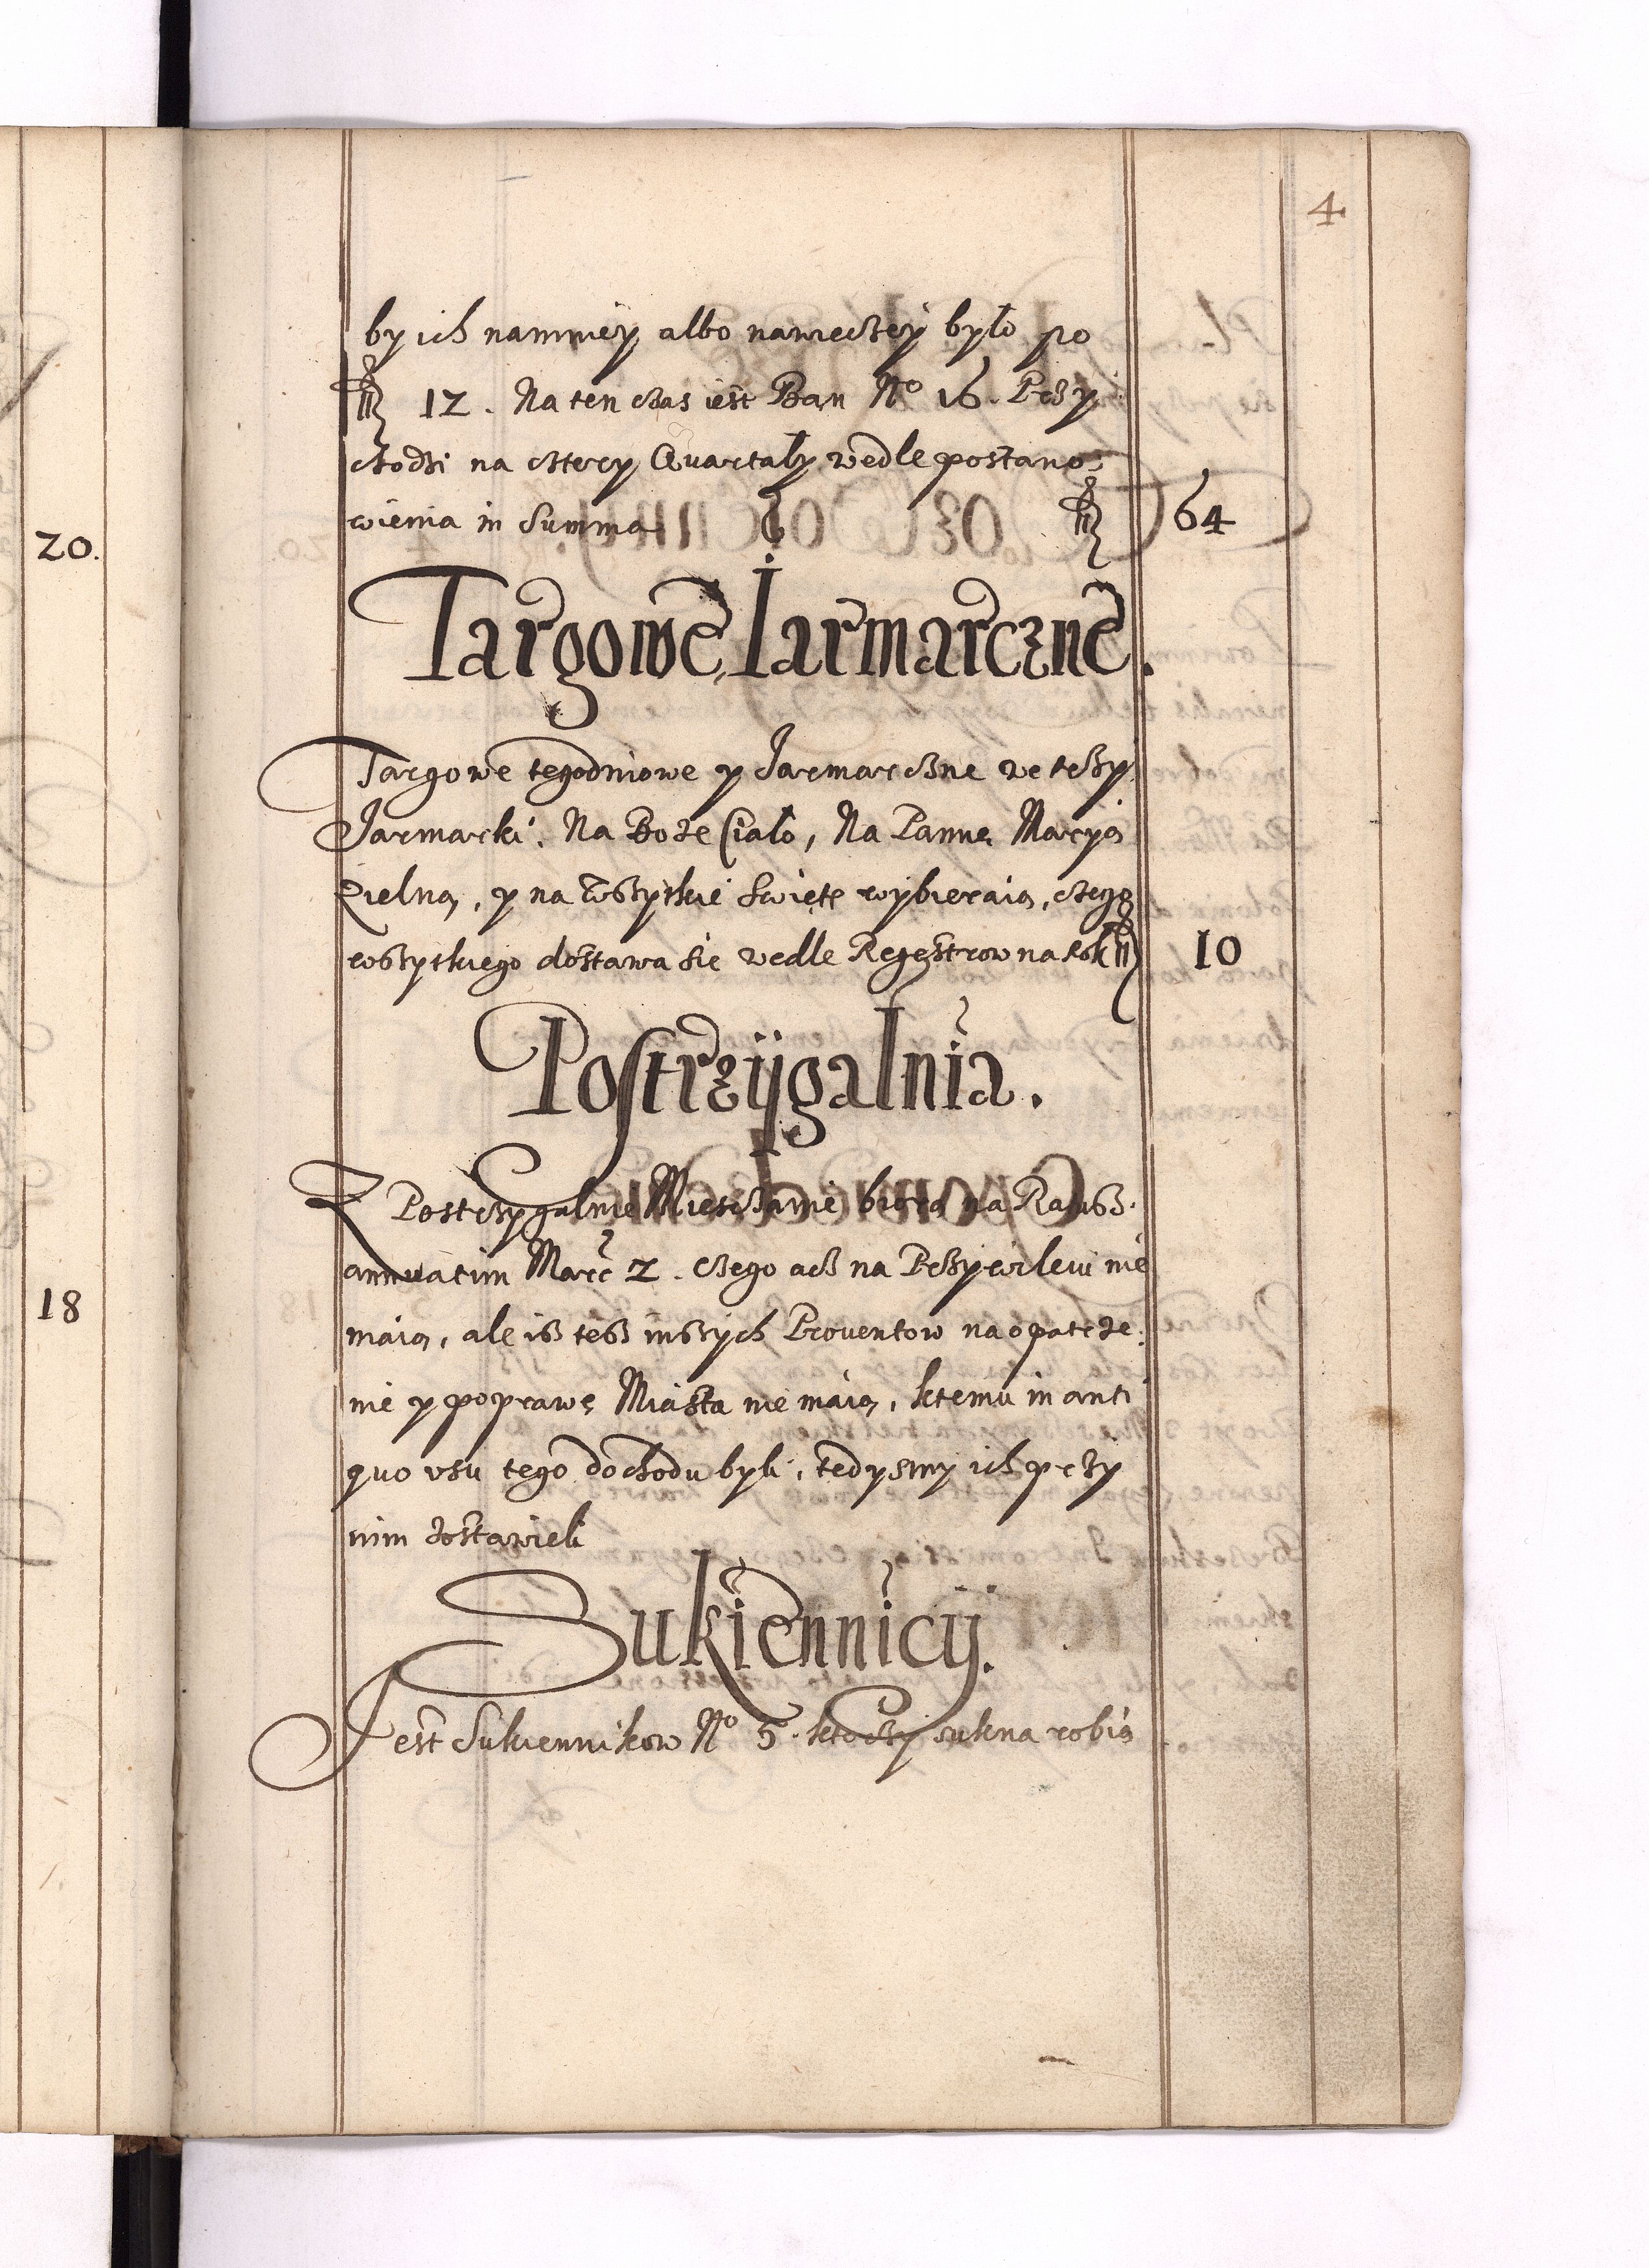 4
by ich namniey albo nawieczey było po
fl 12. Na ten czas iest Ban No 16. Przy
chodzi na cztery Quartały wedle postano:
wienia in Summa fl 64
Targowe, Iarmarczne.
Targowe tegodniowe y Jarmarczne we trzy
Jarmarki. Na Boże Ciało, Na Pannę Maryą
Zielną, y na Wszytkie Swięte wybieraią, czego
wszytkiego dostawa się wedle Regestrow na Rok fl 10
Postrzygalnia.
Z Postrzygalnie Mieszczanie biorą na Ratusz
annuatim Marc 2. czego acz na Przywileiu nie
maią, ale isz tesz inszych Proventow na opatrze:
nie y poprawę Miasta nie maią, k temu in anti
quo usu tego dochodu byli, tedysmy ich przy
nim zostawieli
Sukiennicy.
Jest Sukiennikow No 5. ktorzy sukna robią
20.
18